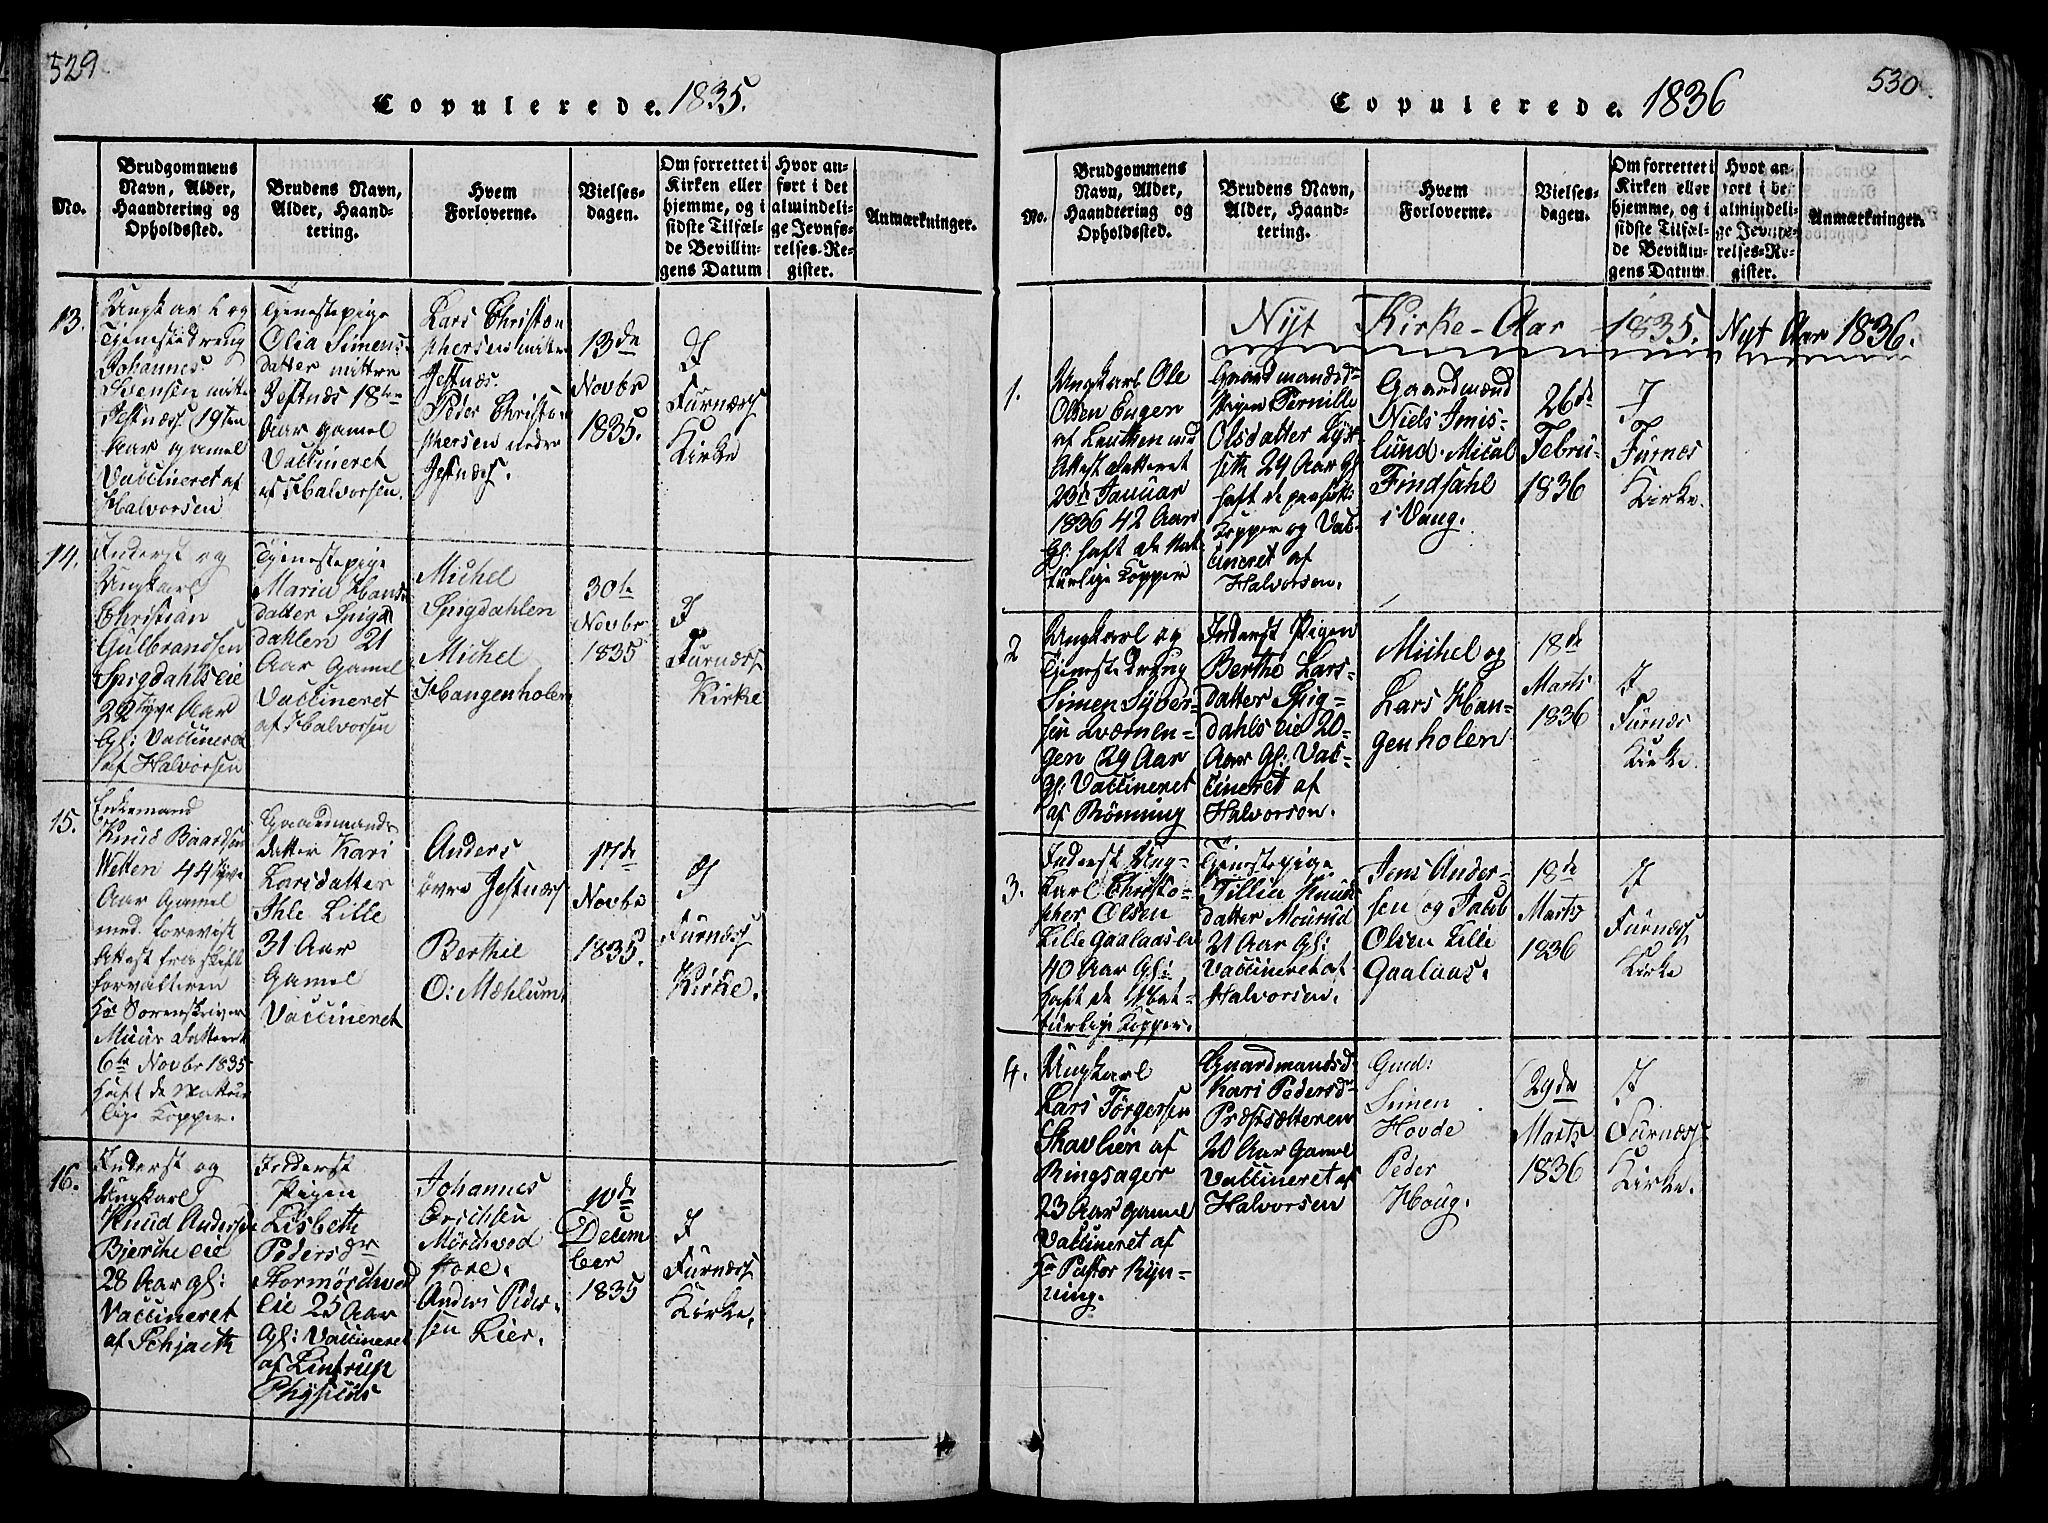 529
Copulerede. 1835.
No.
Brudgommens
Navn, Alder,
Haandtering og
Opholdssted.
Brudens Navn,
Alder, Haand-
tering.
Hvem
Forloverne.
Vielses-
dagen.
Om forrettet i
Kirken eller
hjemme, og i
sidste Tilfæl-
de Bevillin-
gens Datum
Hvor an-
ført i det
almindeli-
ge Jevnfø-
relses-Re-
gister.
Anmærkninger.
13.
Ungkarl og
Tjenestedreng
Johannes
Sørensen
Jestnæs 19ten
Aar gamel
Vaccineret af
Halvorsen
Tjenestepige
Olia Simens-
datter mittre
Jestnæs 18ten
Aar gamel
Vaccineret
af Halvorsen.
Lars Christen
phersen mittre
Jestnæs.
Peder Christen
phersen nedre
Jestnæs.
13de
Novbr
1835.
I
Furnæss
Kirke
14.
Inderst og
Ungkarl
Christian
Gulbrandsen
Spigdahlseie
22 tyve Aar
Gl: Vaccineret
af Halvorsen
Tjenestepige
Maria Hans
datter Spig
dahlen 21
Aar Gamel
Vaccineret
af Halvorsen
Michel
Spigdahlen
Michel
Hangenholen
30te
Novbr
1835
I
Furnæss
Kirke
15.
Enkemand
Knud Baardsen
Wetten 44 tyve
Aar Gamel
med forevist
Attest fra skift
forvalteren
Hr Sorenskriver
Muus Datteret
6te Novbr 1835
Haft de Nattur
lige Kopper.
Gaardmands
datter Kari
Larsdatter
Ihle Lille
31 Aar
Gamel
Vaccineret
Anders
övre Jestnæs
Berthil
O: Mæhlum
17de
Novbr
1835.
I
Furnæss
Kirke.
16.
Inderst og
Ungkarl
Knud Anderse
Bjerche eie
28 Aar gl:
Vaccineret
af Schjøth
Inderst
Pigen
Lisbeth
Pedersdr
Stormörchved
Eie 25 Aar
Gl: Vaccineret
af Lintrup
Physicus
Johannes
Erichsen
Mörchved
store.
Anders Peder-
sen Lier.
10de
Decem
ber
1835
I
Furnæss
Kirke.
530
Copulerede. 1836
No.
Brudgommens
Navn, Alder,
Haandtering og
Opholdssted.
Brudens Navn,
Alder, Haand-
tering.
Hvem
Forloverne.
Vielses-
dagen.
Om forrettet i
Kirken eller
hjemme, og i
sidste Tilfæl-
de Bevillin-
gens Datum
Hvor an-
ført i det
almindeli-
ge Jevnfø-
relses-Re-
gister.
Anmærkninger.
Nyt Kirke-Aar 1835. Nyt Aar 1836.
1.
Ungkarl Ole
Olsen Engen
af Leuthen med
Attest Datteret
23de Januar
1836 42 Aar
Gl: haft de Nat
turlige Kopper
Gaardmandsd-
Pigen Pernille
Olsdatter
29 Aar Gl
haft de
Kopper og Vac-
cineret af
Halvorsen.
Gaardmænd
Niels Imis-
lund. Mical
Findsahl
i Vang.
26de
Febru-
1836
I
Furnes
Kirke.
2
Ungkarl og
Tjenestedreng
Simen Syver-
sen Qværnen-
gen (29 Aar
gl: Vaccineret
af Rönning
Inderst Pigen
Berthe Lars-
datter Spig-
dahls eie 20
Aar Gl: Vac-
cineret af
Halvorsen.
Michel og
Lars Han-
genholen
18de
Marts
1836
I
Furnæs
Kirke.
3.
Inderst Ung-
karl Christo-
pher Olsen
Lille Gaalaas eie
40 Aar Gl:
haft de Nat-
turlige Kopper.
Tjenestepige
Tillia Knuds
datter Mourud
21 Aar Gl:
vaccineret af
Halvorsen.
Jens Ander-
sen og Jacob
Olsen Lille
Gaalaas.
18de
Marts
1836
I
Furnæss
Kirke
4.
Ungkarl
Lars Törgersen
Skavlien af
Ringsager
23 Aar gamel
Vaccineret af
Hr Pastor Ryn-
ning.
Gaardmandsd-
Kari Pedersdr
Præstsætteren
20 Aar Gamel
Vaccineret af
Halvorsen
Gmd:
Simen
Hovde
Peder
Houg.
29de
Marts
1836
I
Furnæss
Kirke.